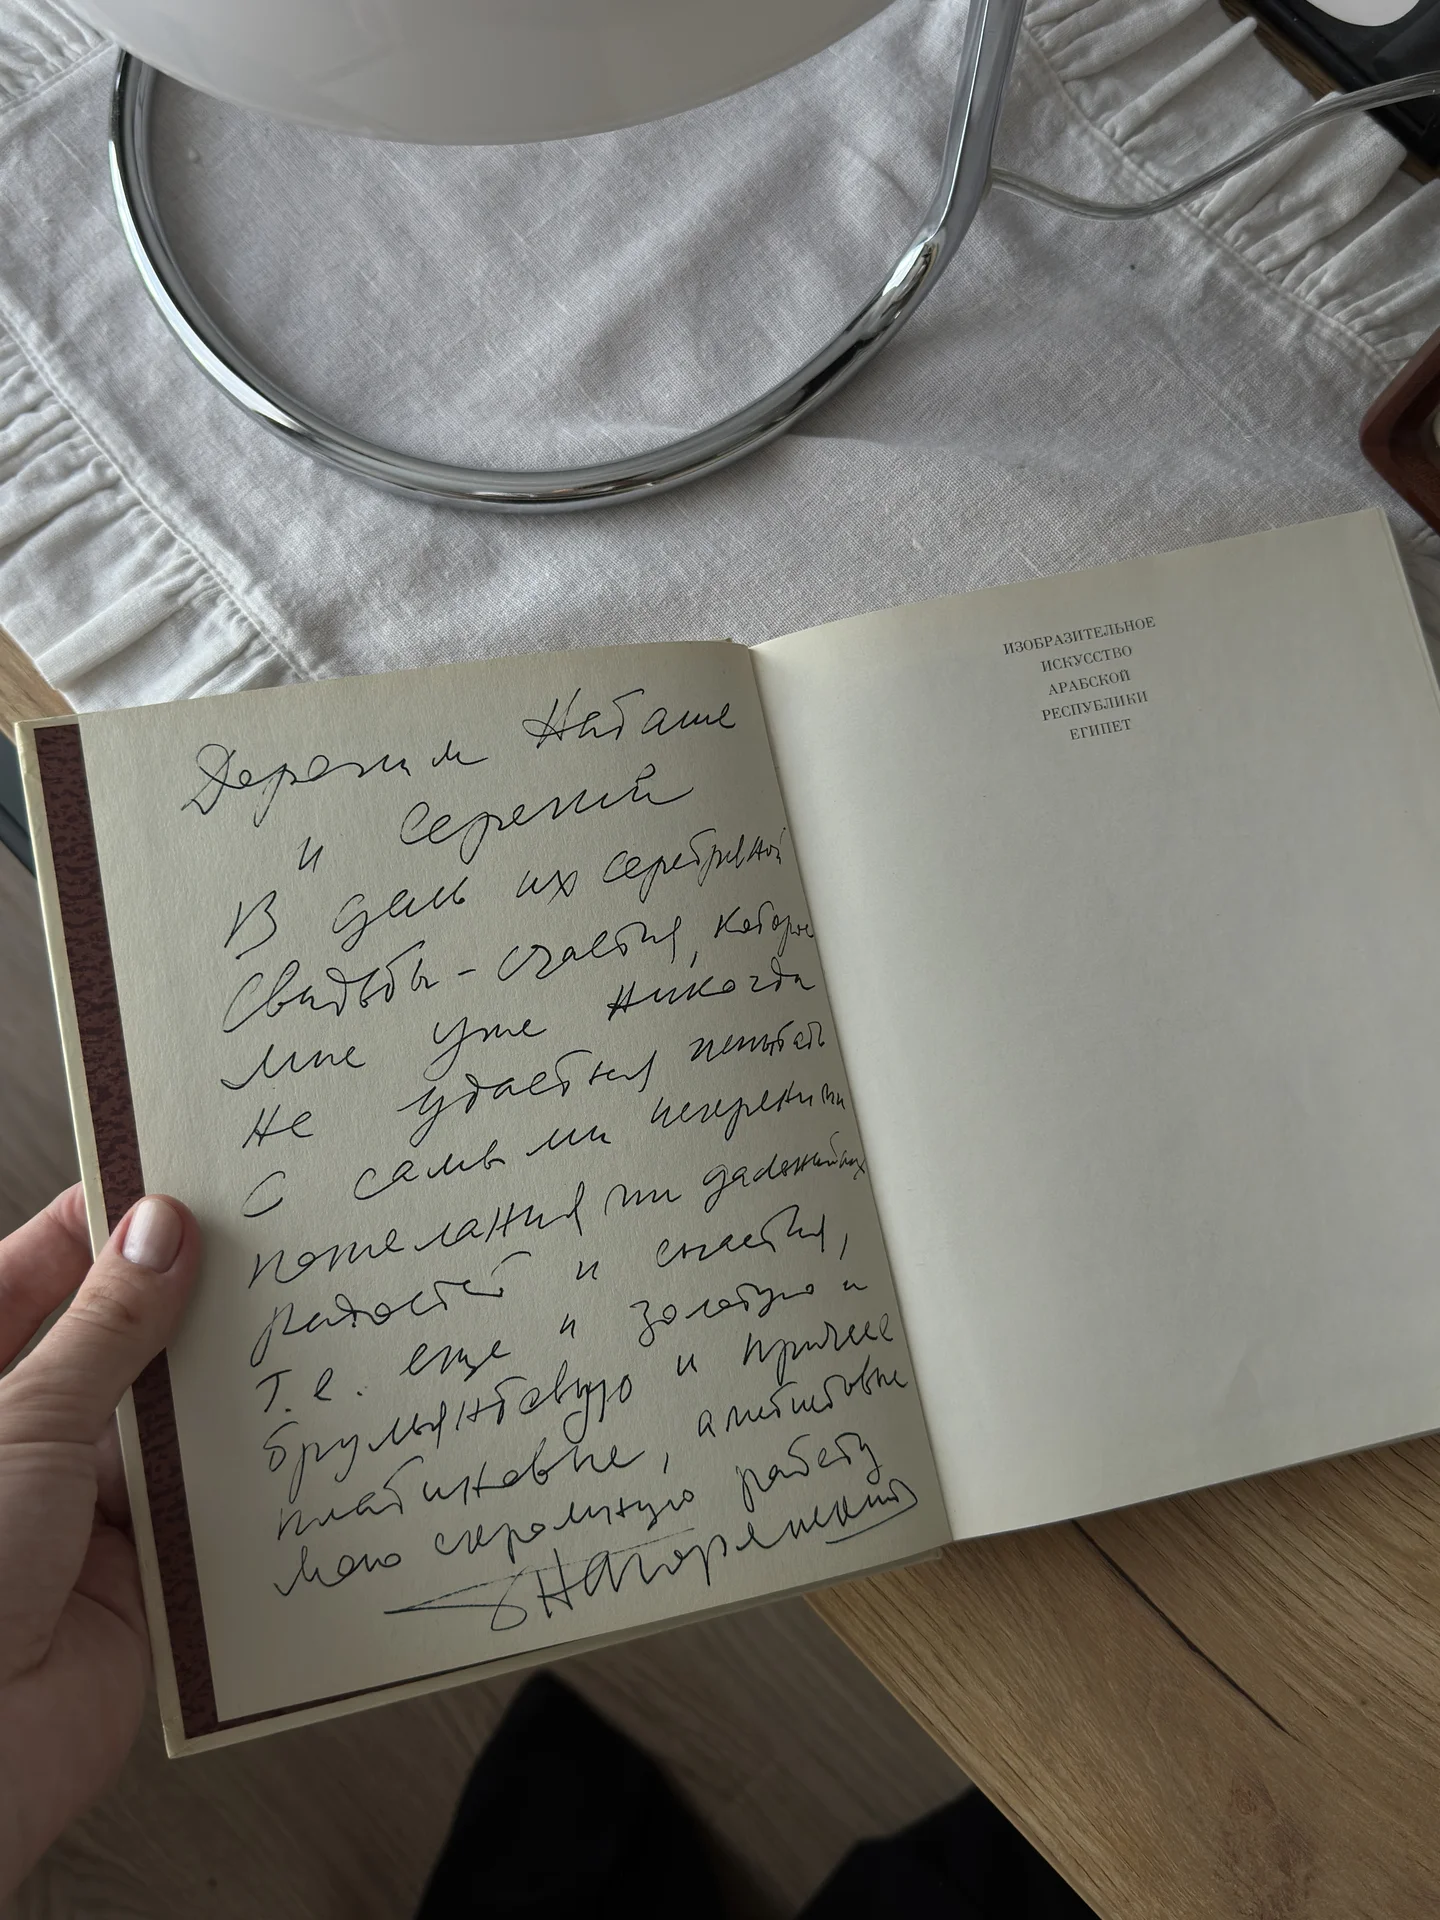 Дорогим Наташе
и Сергеий
В день их серебряной
свадьбы - счастья, которое
мне уже никогда
не удастся испытать
С самыми искренними
пожеланиями дальнейших
радостей и счастья,
т.е. еще и золотую и
бриллиантовую и прочее
платиновые, аметистовые
мою скромную работу
ИЗОБРАЗИТЕЛЬНОЕ
ИСКУССТВО
АРАБСКОЙ
РЕСПУБЛИКИ
ЕГИПЕТ